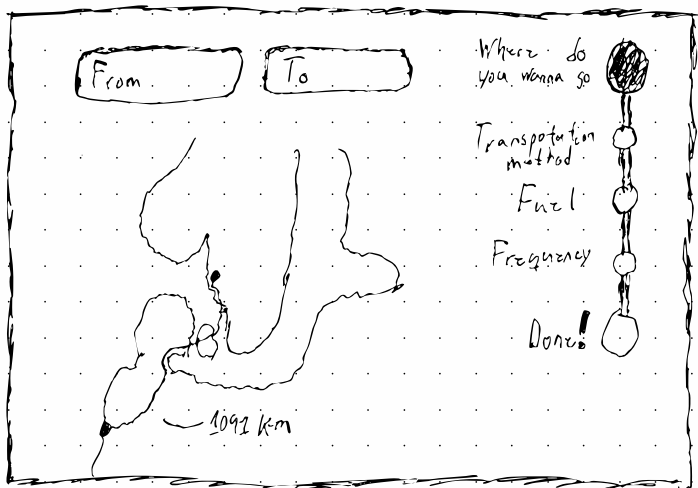 From
To
Where do
you wanna go
Transpotation
method
Fuel
Frequency
Done!
1091 Km